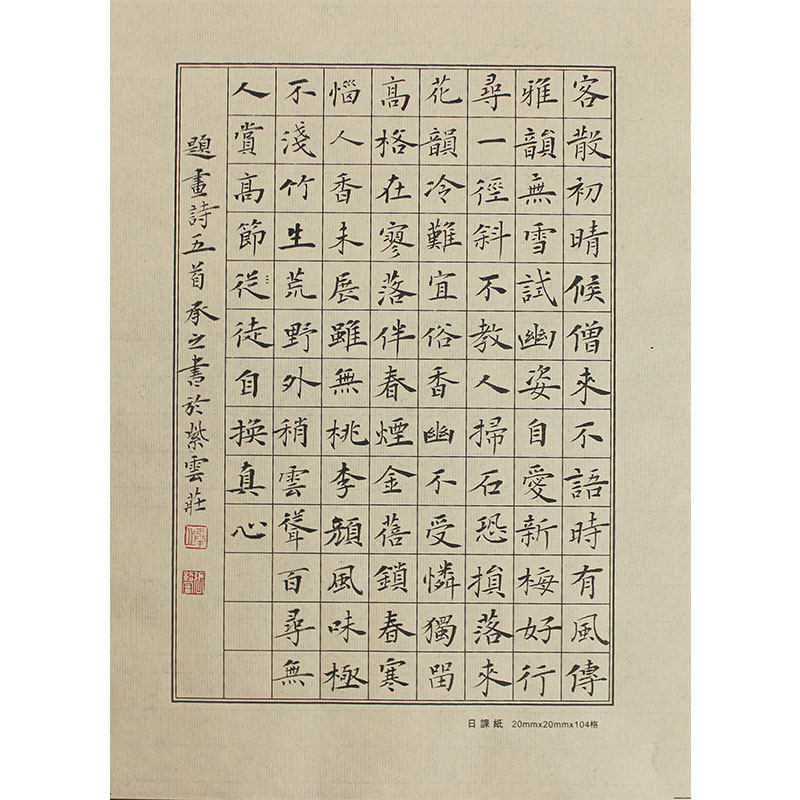 客散初晴候僧來不語時有風傳
雅韻無雪試幽姿自愛新梅好行
尋一徑斜不教人掃石恐損落來
花韻冷難宜俗香幽不受憐獨留
高格在寥落伴春煙金蓓鎖春寒
惱人香未展雖無桃李顏風味極
不淺竹生荒野外稍雲聳百尋無
人賞高節從徒自換真心
題畫詩五首承之書於紫雲莊
日課紙 20mmx20mmx104格